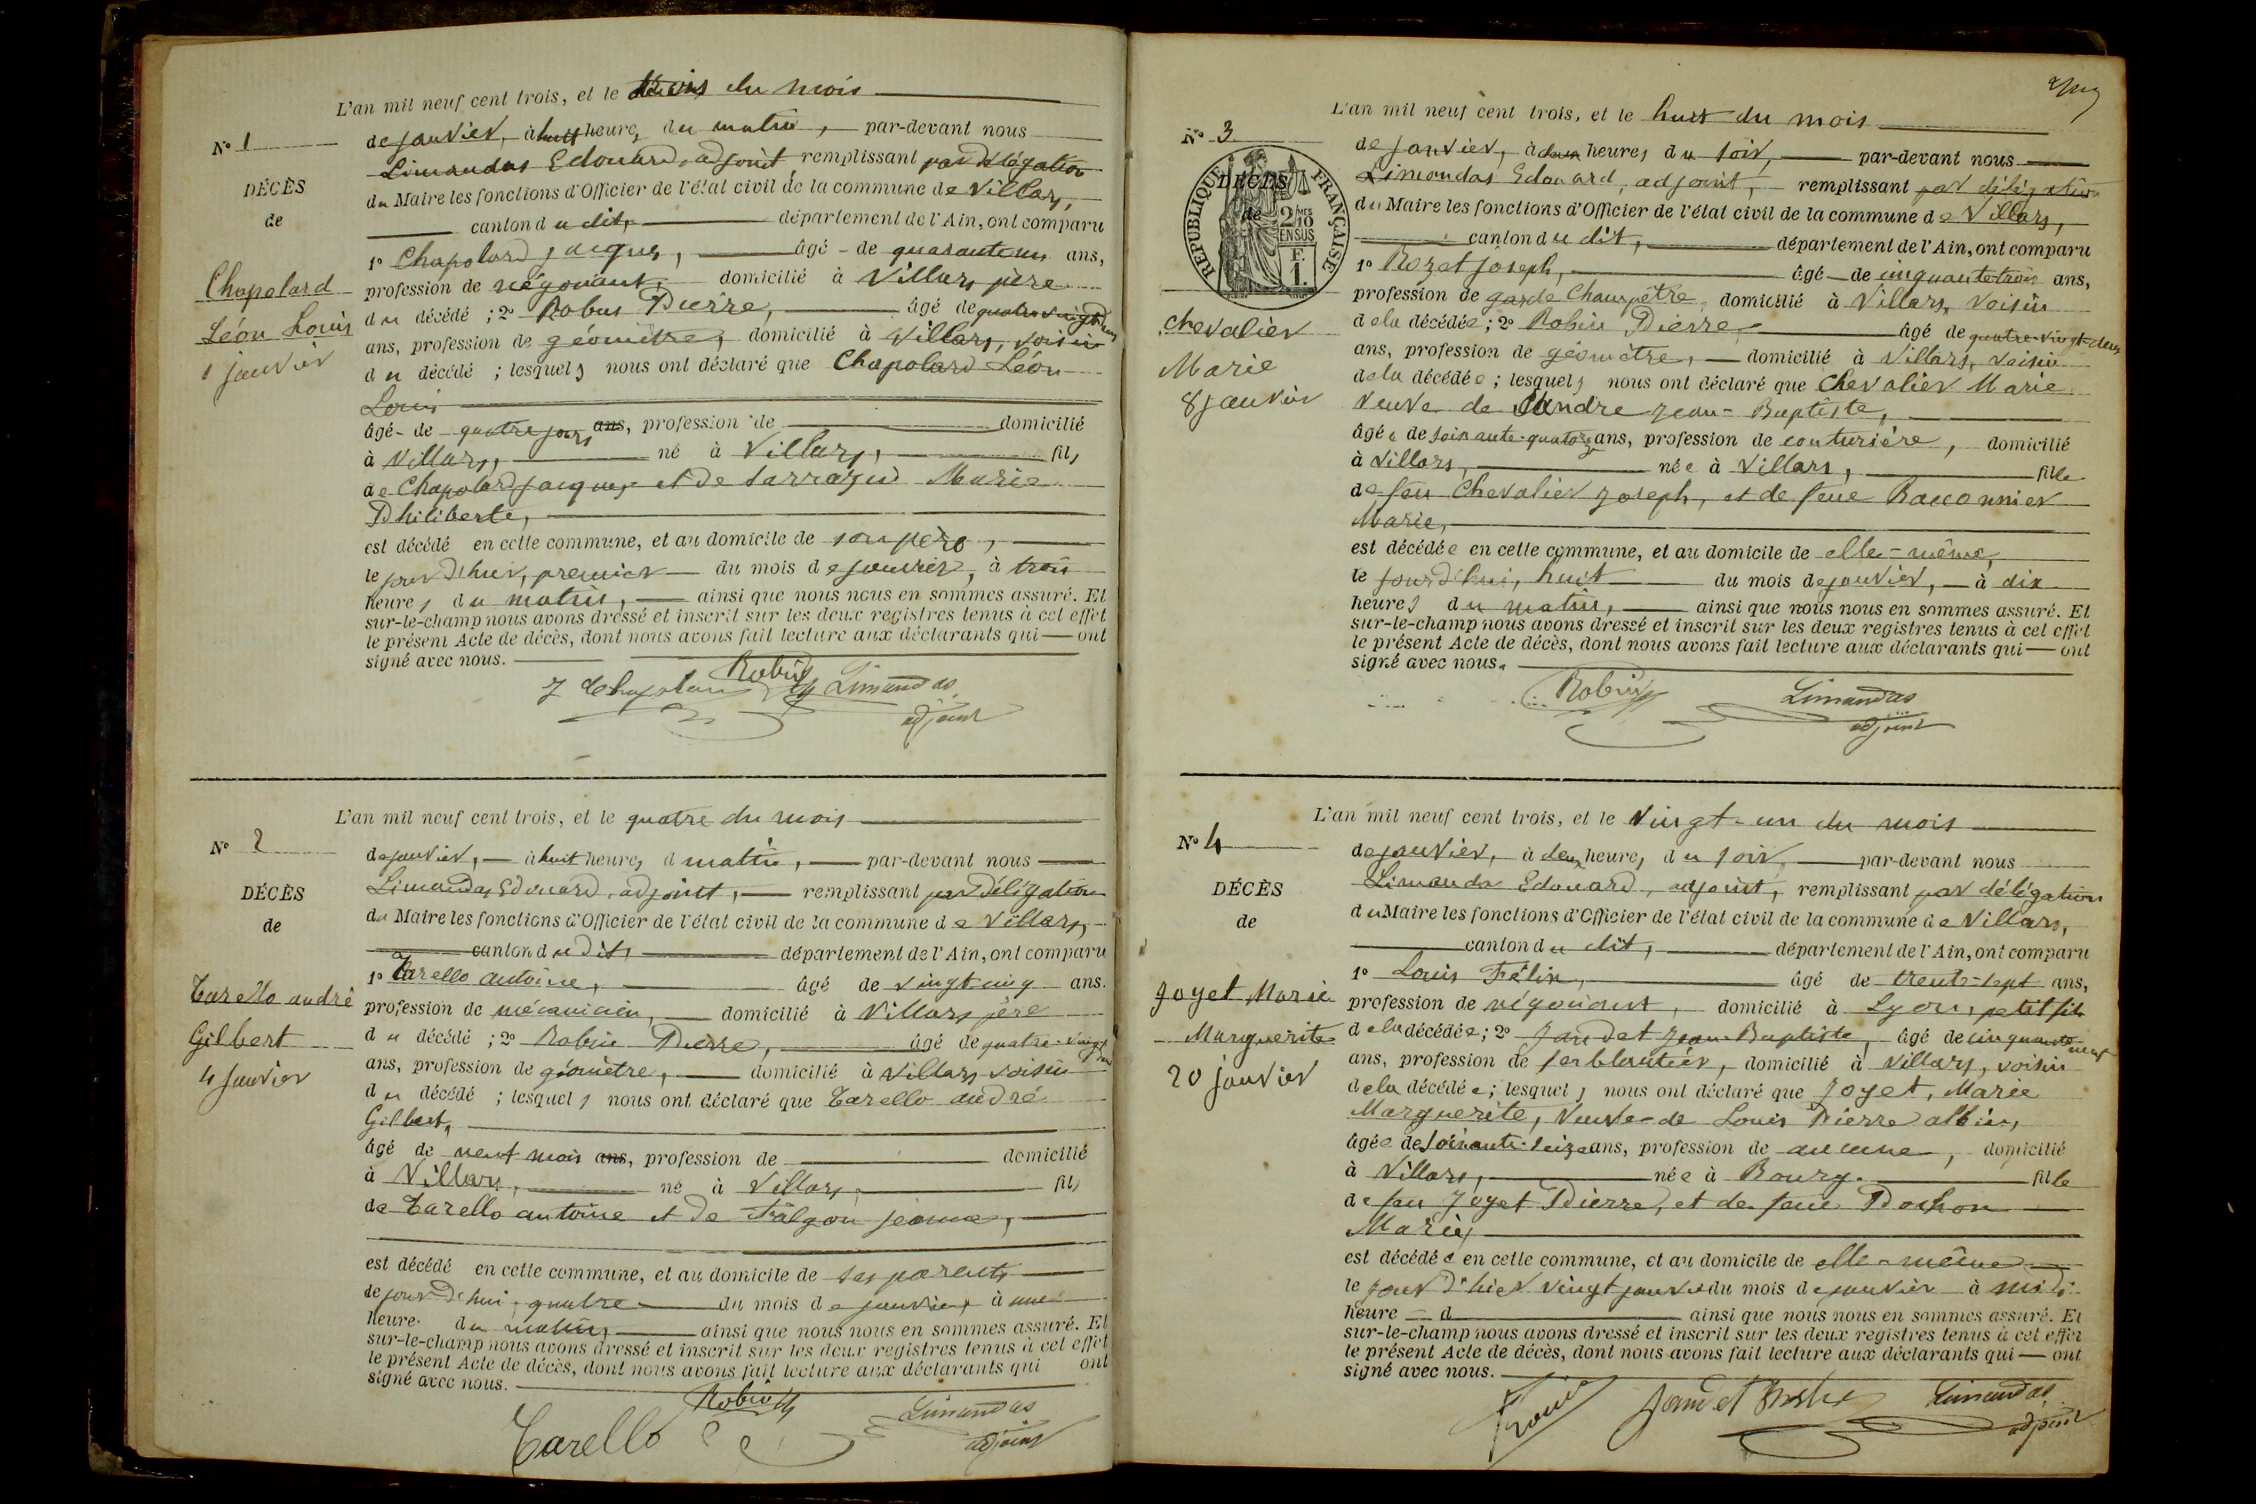 L'an mil neuf cent trois, et le trois du mois
N° 1
de janvier, à huit heures du matin, par-devant nous
Limandas Edouard, adjoint remplissant par délégation
DÉCÈS
du Maire les fonctions d'Officier de l'état civil de la commune de Villars,
de
canton du dit, département de l'Ain, ont comparu
1° Chapolard Jacques, âgé de quarante un ans,
Chapolard
profession de négociant, domicilié à Villars père
Léon Louis
du décédé ; 2° Robin Pierre, âgé de quatre vingt deux
1 janvier
ans, profession de géomètre, domicilié à Villars, voisin
du décédé ; lesquels nous ont déclaré que Chapolard Léon
Louis
âgé de quatre jours ans, profession de domicilié
à Villars, né à Villars, fils
de Chapolard Jacques et de Sarrazin Marie
Philiberte,
est décédé en cette commune, et au domicile de son père,
le jour d'hier, premier du mois de janvier, à trois
heures du matin, ainsi que nous nous en sommes assuré. Et
sur-le-champ nous avons dressé et inscrit sur les deux registres tenus à cet effet
le présent Acte de décès, dont nous avons fait lecture aux déclarants qui ont
signé avec nous.
J Chapolard Robin Limandas
adjoint
L'an mil neuf cent trois, et le quatre du mois
N° 2
de janvier, à huit heures d matin, par-devant nous
Limandas Edouard, adjoint, remplissant par délégation
DÉCÈS
du Maire les fonctions d'Officier de l'état civil de la commune de Villars,
de
canton du dit, département de l'Ain, ont comparu
1° Tarello antoine, âgé de vingt cinq ans.
Tarello andré
profession de mécanicien, domicilié à Villars père
Gilbert
du décédé ; 2° Robin Pierre, âgé de quatre-vingt deux
4 janvier
ans, profession de géomètre, domicilié à Villars voisin
du décédé ; lesquels nous ont déclaré que Tarello andré
Gilbert,
âgé de neuf mois ans, profession de domicilié
à Villars, né à Villars, fils
de Tarello antoine et de Falgon jeanne,
est décédé en cette commune, et au domicile de ses parents
le jour d'hui, quatre du mois de janvier, à une
heure du matin, ainsi que nous nous en sommes assuré. Et
sur-le-champ nous avons dressé et inscrit sur les deux registres tenus à cet effet
le présent Acte de décès, dont nous avons fait lecture aux déclarants qui ont
signé avec nous.
Tarello Robin Limandas
adjoint
L'an mil neuf cent trois, et le huit du mois
N° 3
de janvier, à deux heures du soir, par-devant nous
Limandas Edouard, adjoint, remplissant par délégation
RÉPUBLIQUE FRANÇAISE
2/10MES EN SUS
F. 1.
DÉCÈS
de
du Maire les fonctions d'Officier de l'état civil de la commune de Villars,
canton du dit, département de l'Ain, ont comparu
1° Rozet Joseph, âgé de cinquante-trois ans,
profession de garde Champêtre, domicilié à Villars, voisin
Chevalier
de la décédée ; 2° Robin Pierre, âgé de quatre-vingt-deux
Marie
ans, profession de géomètre, domicilié à Villars, voisin
8 janvier
de la décédée ; lesquels nous ont déclaré que Chevalier Marie
veuve de Jean-Baptiste,
âgée de soixante-quatorze ans, profession de couturière, domicilié
à Villars, née à Villars, fille
de feu Chevalier Joseph, et de feue Raconnier
Marie,
est décédée en cette commune, et au domicile de elle-même,
le jourd'hui, huit du mois de janvier, à dix
heures du matin, ainsi que nous nous en sommes assuré. Et
sur-le-champ nous avons dressé et inscrit sur les deux registres tenus à cet effet
le présent Acte de décès, dont nous avons fait lecture aux déclarants qui ont
signé avec nous.
Robin Limandas
adjoint
L'an mil neuf cent trois, et le vingt-un du mois
N° 4
de janvier, à deux heures du soir, par-devant nous
Limandas Edouard, adjoint, remplissant par délégation
DÉCÈS
du Maire les fonctions d'Officier de l'état civil de la commune de Villars,
de
canton du dit, département de l'Ain, ont comparu
1° Louis Félix, âgé de trente-sept ans,
Joyet Marie
profession de négociant, domicilié à Lyon, petit fils
Marguerite
de la décédée ; 2° Jandet Jean-Baptiste, âgé de cinquante neuf
20 janvier
ans, profession de ferblantier, domicilié à Villars, voisin
de la décédée ; lesquels nous ont déclaré que Joyet, Marie
Marguerite, Veuve de Louis Pierre albin,
âgée de soixante-seize ans, profession de aucune, domicilié
à Villars, née à Bourg. fille
de feu Joyet Pierre, et de feue Pochon
Marie,
est décédée en cette commune, et au domicile de elle-même
le jour d'hier vingt janvier du mois de janvier à midi
heure d ainsi que nous nous en sommes assuré. Et
sur-le-champ nous avons dressé et inscrit sur les deux registres tenus à cet effet
le présent Acte de décès, dont nous avons fait lecture aux déclarants qui ont
signé avec nous.
Louis Jandet Limandas
adjoint